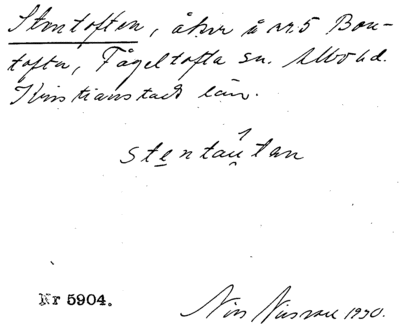 Stentoften, åker å nr. 5 Bon-
tofta, Fågeltofta sn. Albo hd.
Kristianstads län.
stentau̯tan
Nr 5904.
Nils 1930.